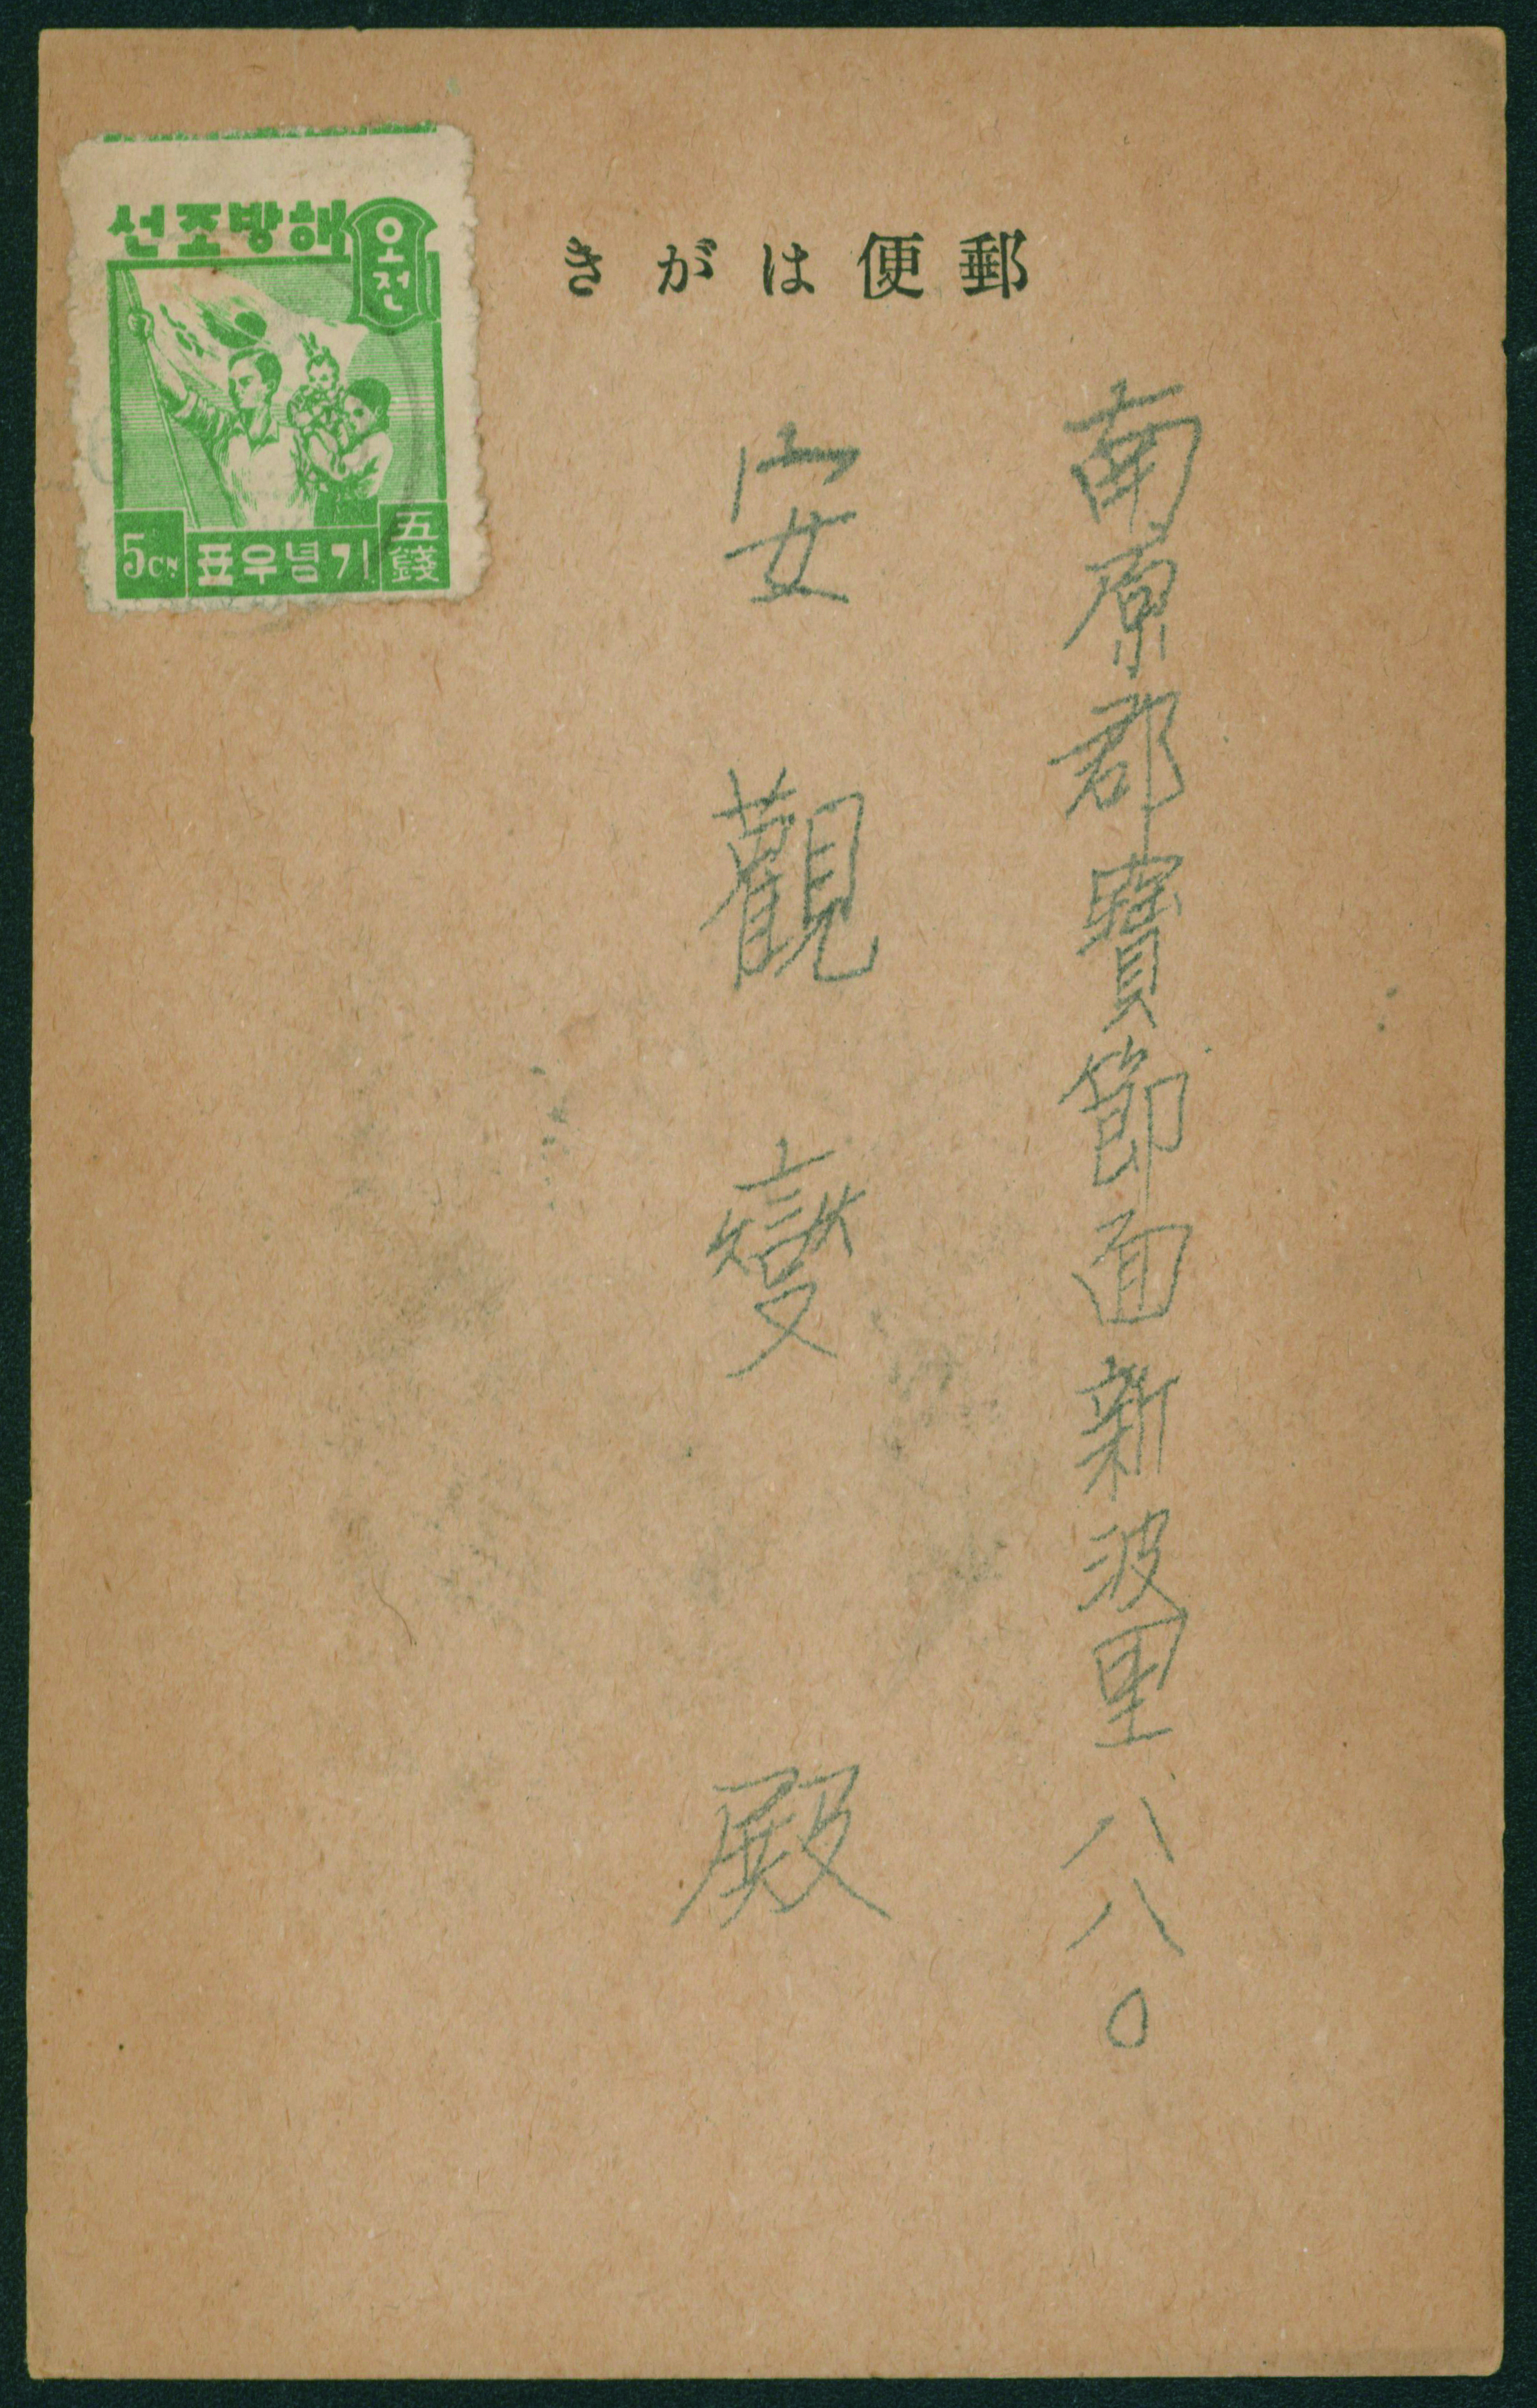 郵便はがき
해방조선
오전
5cn
기념우표
五錢
南原郡寶節面新波里八八〇
安觀燮 殿